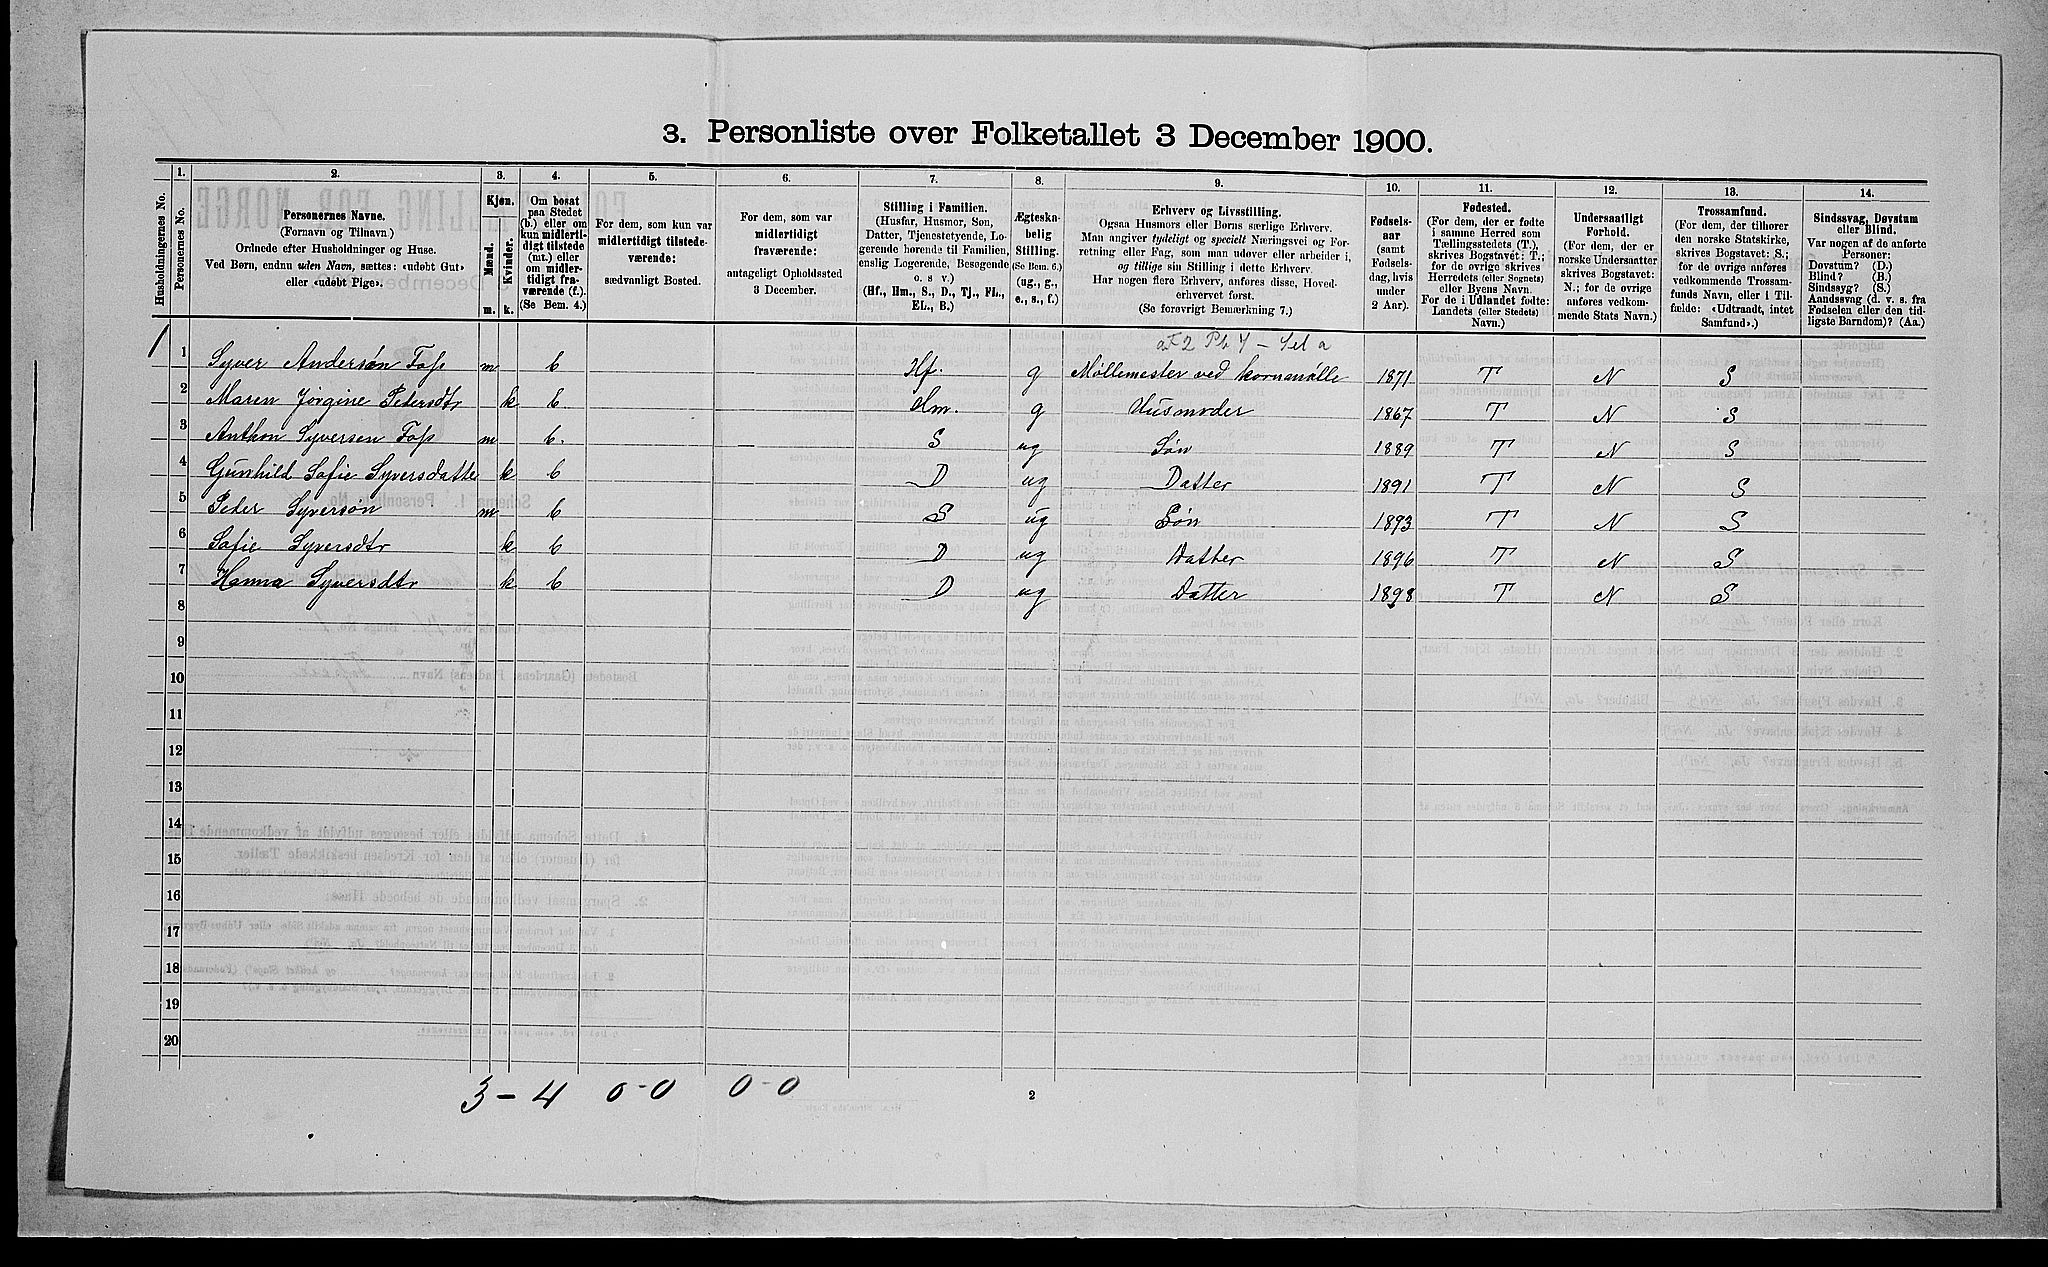 3. Personliste over Folketallet 3 December 1900.
Husholdningernes No.
1. Personernes No.
2. Personernes Navne.
(Fornavn og Tilnavn.)
Ordnede efter Husholdninger og Huse.
Ved Børn, endnu uden Navn, sættes: «udøbt Gut»
eller «udøbt Pige».
3. Kjøn.
Mænd. m.
Kvinder. k.
4. Om bosat
paa Stedet
(b.) eller om
kun midlerti-
digt tilstede
(mt.) eller
om midler-
tidigt fra-
værende (f.)
(Se Bem. 4.)
5. For dem, som kun var
midlertidigt tilstede-
værende:
sædvanligt Bosted.
6. For dem, som var
midlertidigt
fraværende:
antageligt Opholdssted
3 December.
7. Stilling i Familien.
(Husfar, Husmor, Søn,
Datter, Tjenestetyende, Lo-
gerende hørende til Familien,
enslig Logerende, Besøgende
o. s v.)
(Hf., Hm., S., D., Tj., FL.,
EL., B.)
8. Ægteska-
belig
Stilling.
(Se Bem. 6.)
(ug., g.,
e., s., f.)
9. Erhverv og Livsstilling.
Ogsaa Husmors eller Børns særlige Erhverv.
Man angiver tydeligt og specielt Næringsvei og For-
retning eller Fag, som man udøver eller arbeider i,
og tillige sin Stilling i dette Erhverv.
Har nogen flere Erhverv, anføres disse, Hoved-
erhvervet først.
(Se forøvrigt Bemærkning 7.)
10. Fødsels-
aar
(samt
Fødsels-
dag, hvis
under
2 Aar).
11. Fødested.
(For dem, der er fødte
i samme Herred som
Tællingsstedets (T.),
skrives Bogstavet: T.;
for de øvrige skrives
Herredets (eller Sognets)
eller Byens Navn.
For de i Udlandet fødte:
Landets (eller Stedets)
Navn.)
12. Undersaatligt
Forhold.
(For dem, der er
norske Undersaatter
skrives Bogstavet:
N.; for de øvrige
anføres vedkom-
mende Stats Navn.)
13. Trossamfund.
(For dem, der tilhører
den norske Statskirke,
skrives Bogstavet: S.;
for de øvrige anføres
vedkommende Trossam-
funds Navn, eller i Til-
fælde: «Udtraadt, intet
Samfund».)
14. Sindssvag, Døvstum
eller Blind.
Var nogen af de anførte
Personer:
Døvstum? (D.)
Blind? (B.)
Sindssyg? (S.)
Aandssvag (d. v. s. fra
Fødselen eller den tid-
ligste Barndom)? (Aa.)
1 1 Syver Andersøn Foss m b Hf. g Møllemester ved kornmølle 1871 T N S
2 Maren Jørgine Pedersdtr k b Hm. g Husmoder 1867 T N S
3 Anthon Syversen Foss m b. S ug Søn 1889 T N S
4 Gunhild Sofie Syversdatter k b D ug Datter 1891 T N S
5 Peder Syversøn m b S ug Søn 1893 T N S
6 Sofie Syversdtr k b D ug Datter 1896 T N S
7 Hanna Syversdtr k b D ug Datter 1898 T N S
8
9
10
11
12
13
14
15
16
17
18
19
20
3 - 4 0-0 0-0
2